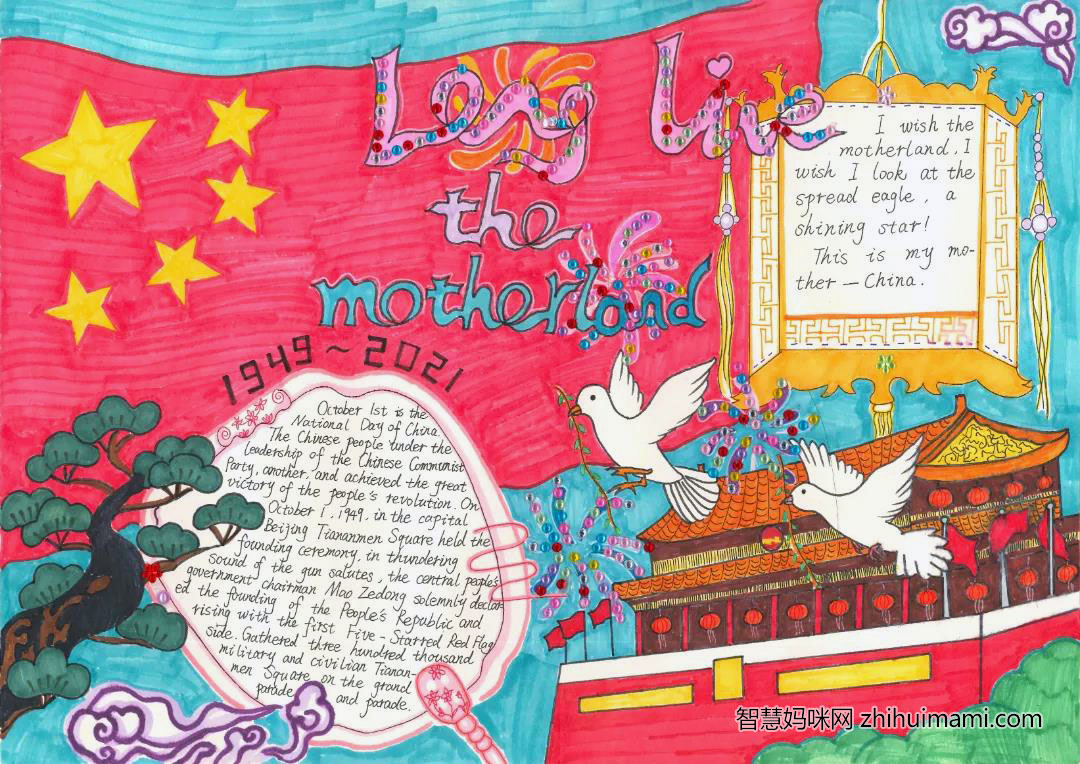 Long Live
the
motherland
1949~2021
I wish the
motherland, I
wish I look at the
spread eagle, a
shining star!
This is my mo-
ther — China.
October 1st is the
National Day of China
The Chinese people under the
leadership of the Chinese Communist
Party, another, and achieved the great
victory of the people's revolution. On
October 1, 1949, in the capital
Beijing Tiananmen Square held the
founding ceremony, in thundering
sound of the gun salutes, the central people's
government chairman Mao Zedong solemnly declar-
ed the founding of the People's Republic and
rising with the first Five-Starred Red Flag
side. Gathered three hundred thousand
military and civilian Tianan-
men Square on the grand
parade and parade.
智慧妈咪网 zhihuimami.com